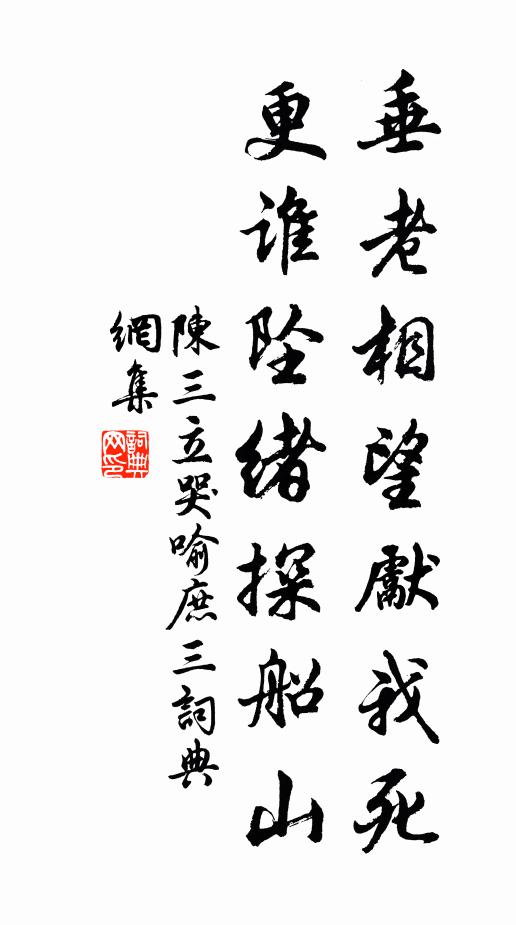 垂老相望獻我死
更誰坠緒探船山
陳三立哭喻庶三詞典
網集
詞典網印